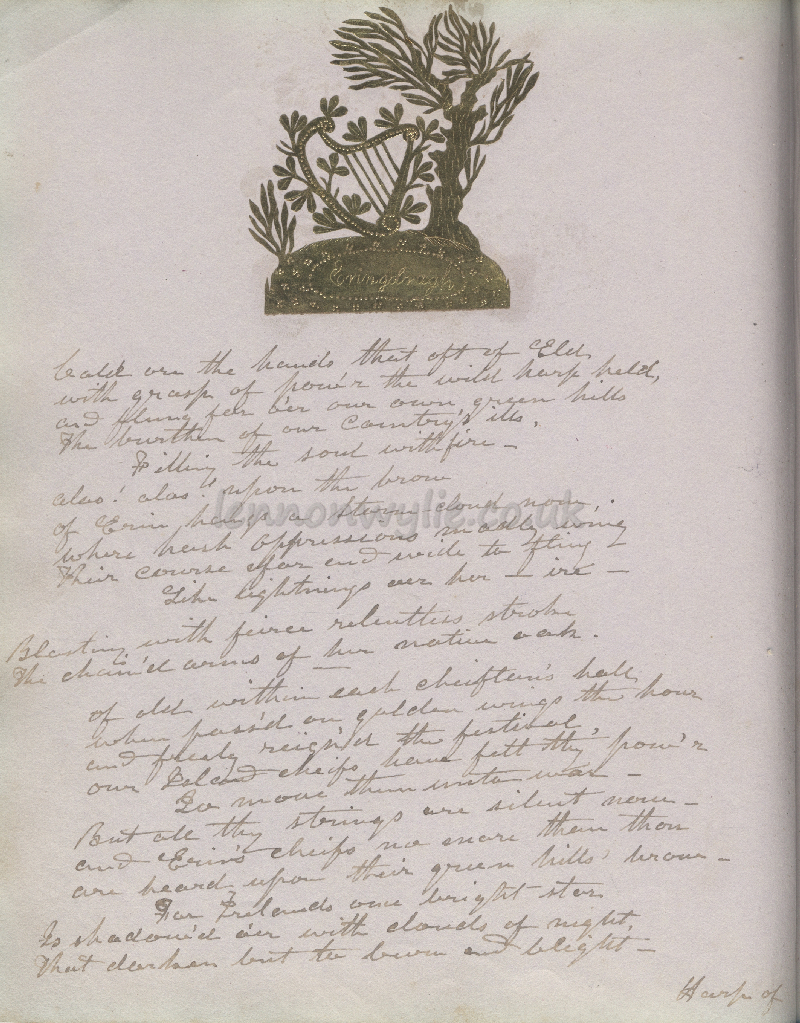 Eringobragh
Cold are the hands that oft of Eld,
with grasp of pow'r the wild harp held,
and flung far o'er our own green hills
The burthen of our Country's ills,
Filling the soul with fire –
alas! alas! upon the brow
of Erin hangs a storm-cloud now,
where harsh oppressions made wing
Their course afar and wide to fling –
Like lightnings o'er her – ire –
Blasting, with feirce relentless stroke
The chain'd arms of her native oak.
of old within each cheiftan's hall,
when pass'd on golden wings the hour
and freely reign'd the festival,
our Island cheifs have felt thy pow'r
To move them unto war –
But all thy strings are silent now –
and Erin's cheifs no more than thou
are heard upon their green hills' brow –
For Irelands one bright star
Is shadow'd o'er with clouds of night,
That darken but to burn and blight –
Harp of
lennonwylie.co.uk